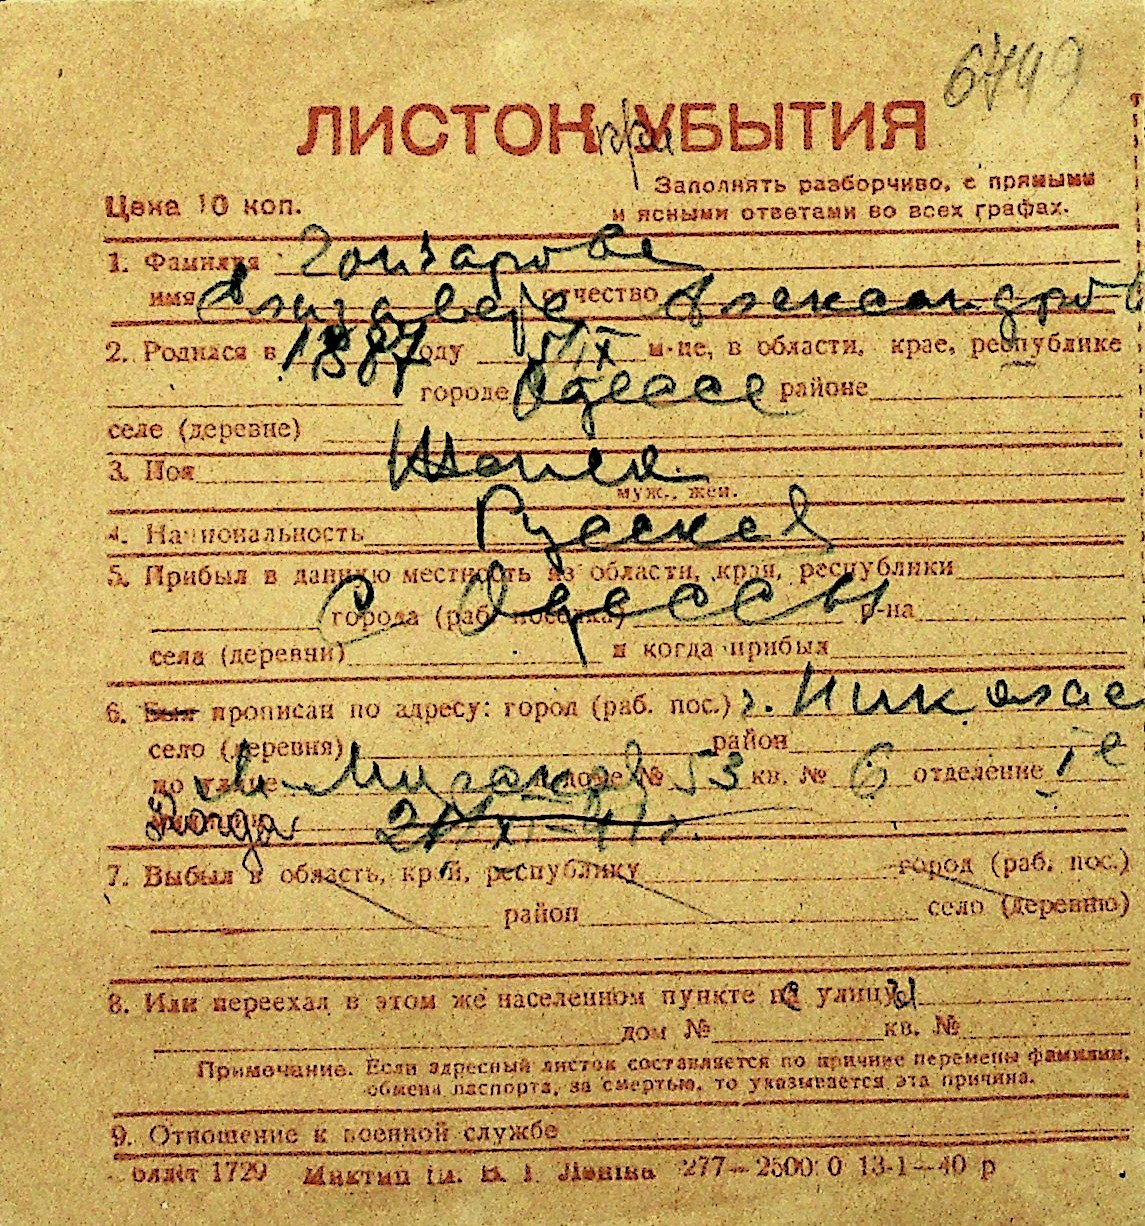 6749
ЛИСТОК при УБЫТИЯ
Цена 10 коп.
Заполнять разборчиво, с прямыми
и ясными ответами во всех графах.
1. Фамилия Гончарова
имя Елизавета отчество Александров
2. Родился в 1887 году 5/IX м-це, в области, крае, республике
городе Одессе районе
селе (деревне)
3. Пол Женск.
муж., жен.
4. Национальность Русская
5. Прибыл в данную местность из области, края, республики
С города (раб. поселка) Одессы р-на
села (деревни) и когда прибыл
6. Был прописан по адресу: город (раб. пос.) г. Николае
село (деревня) район
по улице доме № 53 кв. № 6 отделение 1е
Когда XI-41 г.
7. Выбыл в область, край, республику город (раб. пос.)
район село (деревню)
8. Или переехал в этом же населенном пункте с улицы
дом № кв. №
Примечание. Если адресный листок составляется по причине перемены фамилии,
обмена паспорта, за смертью, то указывается эта причина.
9. Отношение к военной службе
1729 ім. В. І. Леніна 277—25000 13-1—40 р